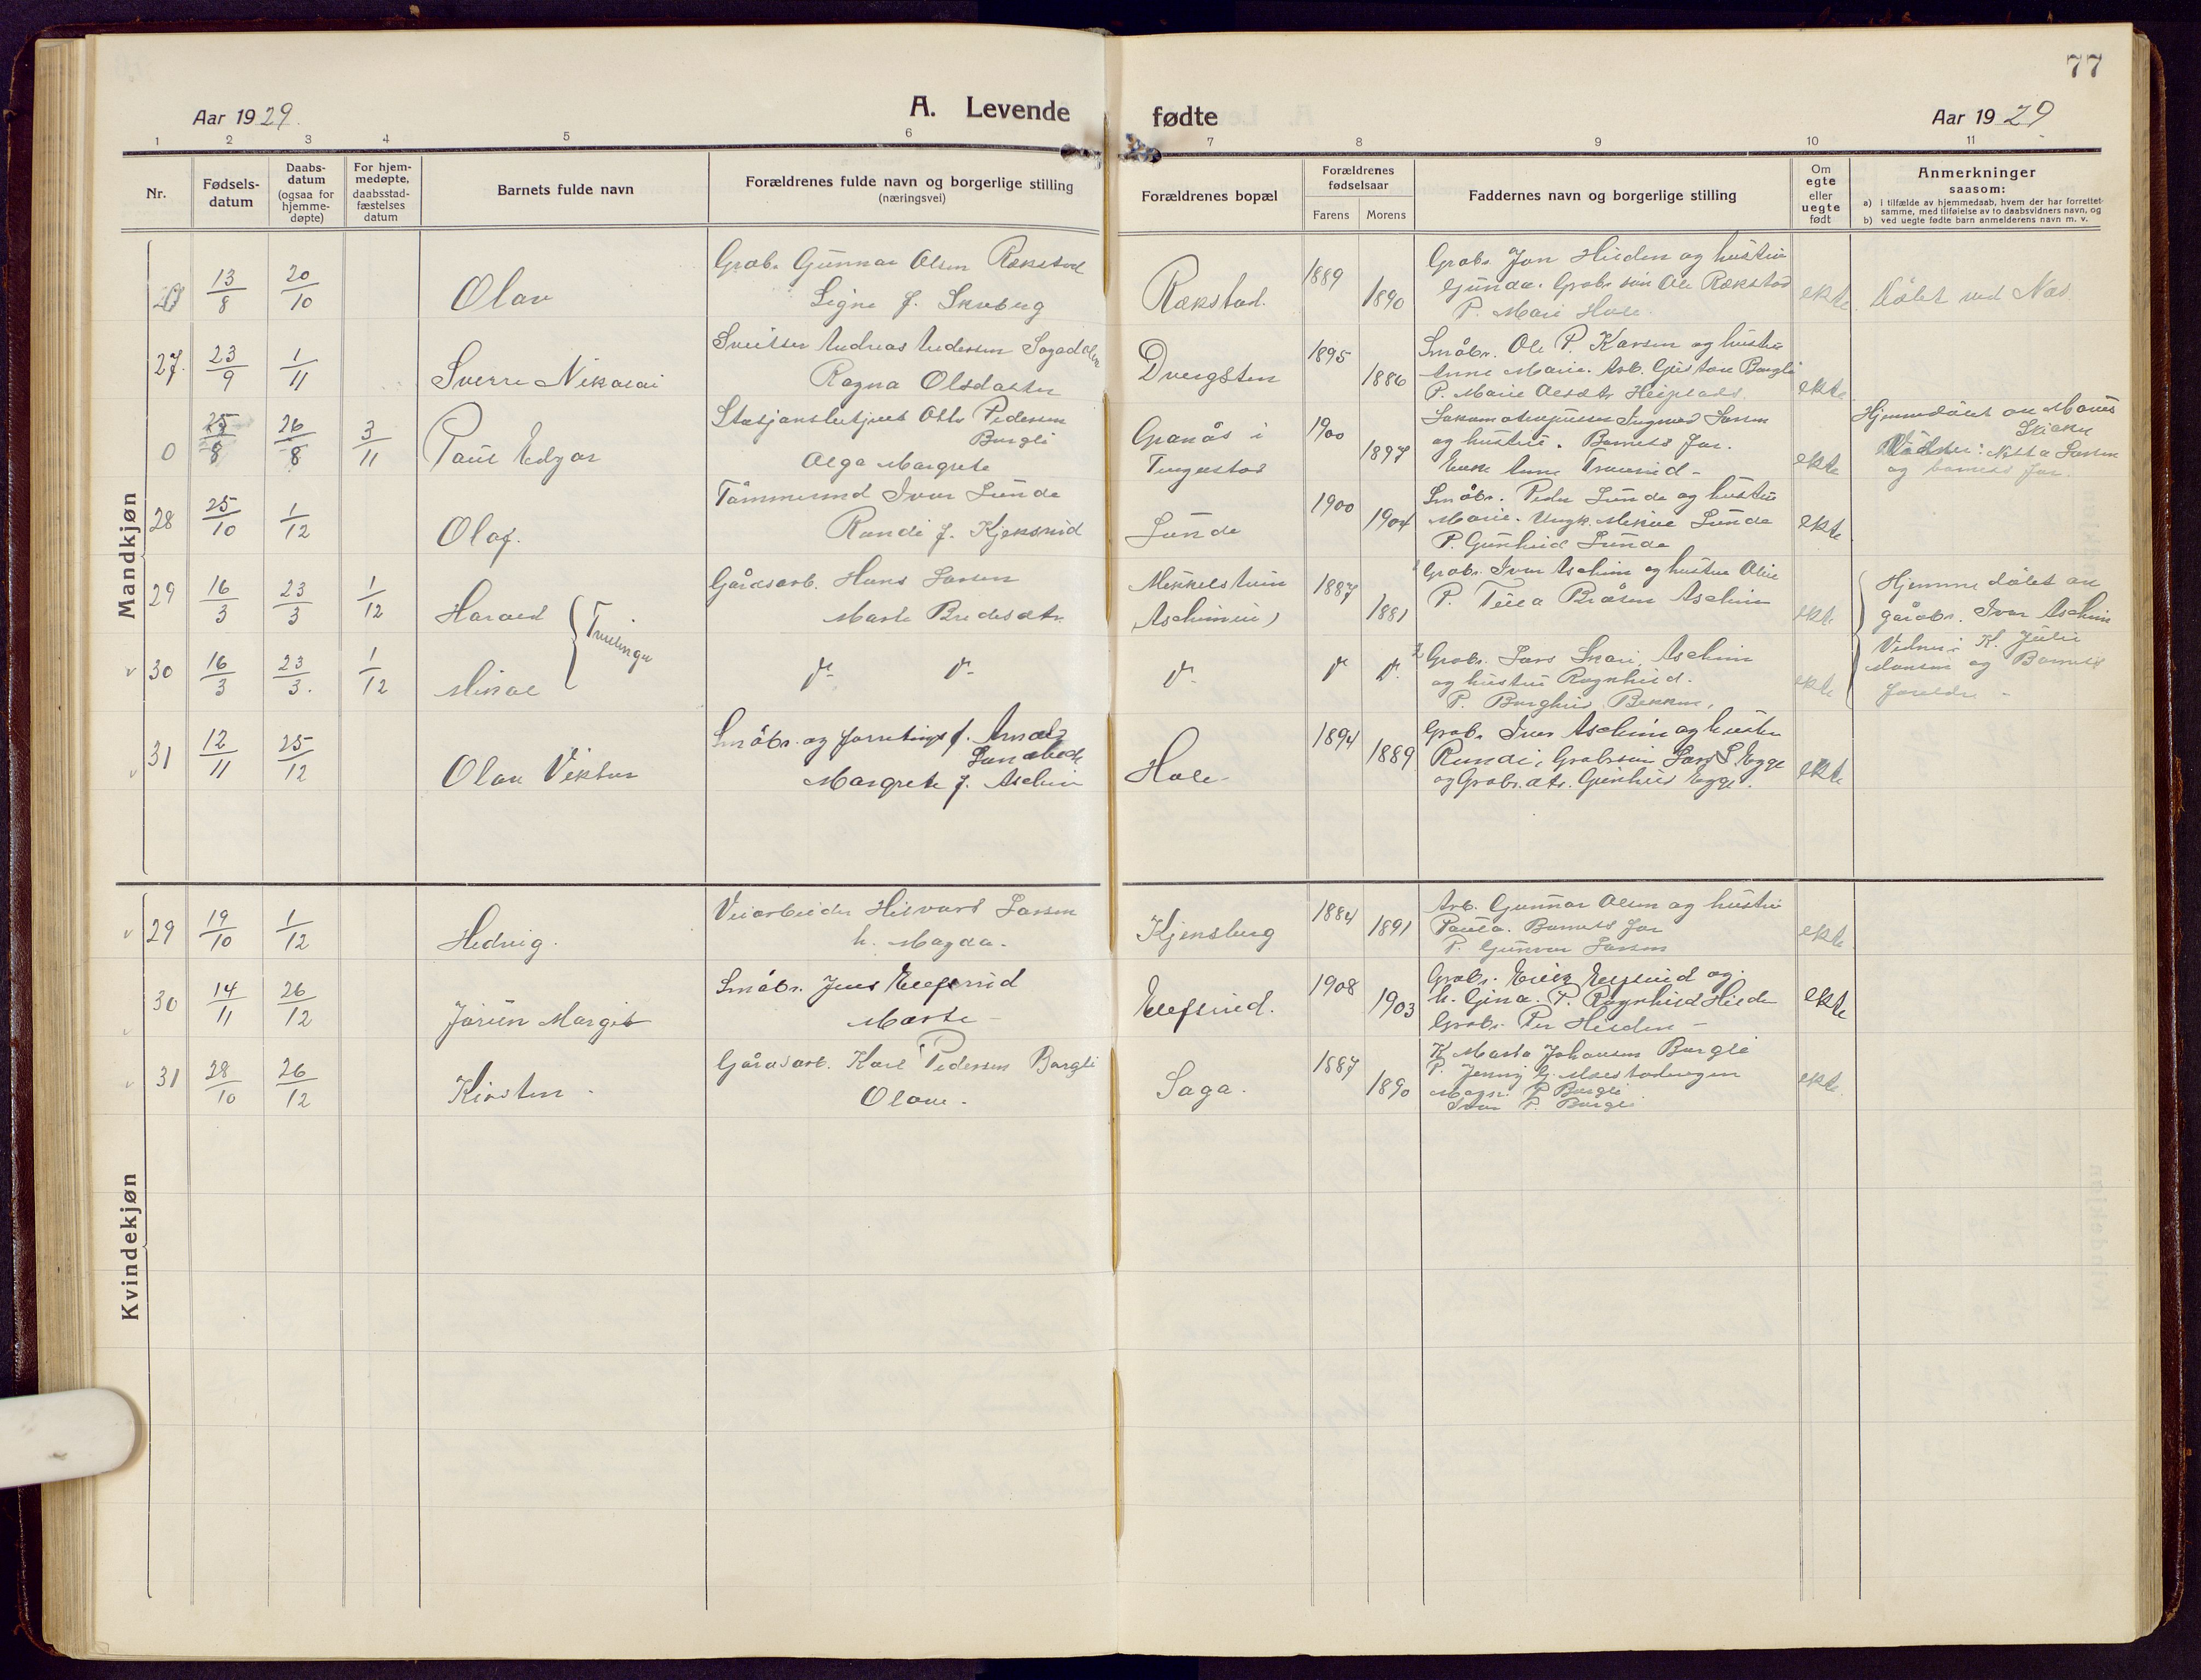 77
Aar 1929.
A. Levende
fødte
Aar 1929
1 2 3 4 5 6 7 8 9 10 11
Nr.
Fødsels-
datum
Daabs-
datum
(ogsaa for
hjemme-
døpte)
For hjem-
medøpte,
daabsstad-
fæstelses
datum
Barnets fulde navn
Forældrenes fulde navn og borgerlige stilling
(næringsvei)
Forældrenes bopæl
Forældrenes
fødselsaar
Farens Morens
Faddernes navn og borgerlige stilling
Om
egte
eller
uegte
født
Anmerkninger
saasom:
a) i tilfælde av hjemmedaab, hvem der har forrettet
samme, med tilføielse av to daabsvidners navn, og
b) ved uegte fødte barn anmelderens navn m. v.
Mandkjøn
13/8 20/10 Olav
Grdbr. Gunnar Olsen Rækstad
Signe f. Skuberg
Rækstad.
1889 1890
Grdbr. Jon Hilden og hustru
Gunda. Grdbr. søn Ole Rækstad
P. Mari Hole.
ekte
Døbt ved Næs
27. 23/9 1/11 Sverre Nikolai
Sveitser Andreas Andersen
Ragna Olsdatter
Dvergsten
1895 1886
Småbr. Ole P. Karsen og hustru
Anne Marie. Arb. Gustav Børgli
P. Marie Olsdtr.
ekte
0 25/8 26/8 3/11 Paul Edgar
Stasjonsbetjent Otto Pedersen
Børgli
Olga Margrete
Granås i
Tingelstad
1900 1897
Ingvald Larsen
og hustru. Barnets far.
Enke Anne
ekte
Hjemmedøbt av
og barnets far.
28 25/10 1/12 Olaf.
Tømmermd Ivar Lunde
Randi f. Kjeksrud
Lunde
1900 1904
Småbr. Peder Lunde og hustru
Marie. Ungk. Mikal Lunde
P. Gunhild Lunde
ekte
29 16/3 23/3 1/12 Harald
Tvillinger
Gårdsarb. Hans Larsen
Marte Bredesdtr.
Mikkelstuen
Aschimeie)
1887 1881
1 Grdbr. Iver Aschim og hustru Olie
P. Tilla Bråten Aschim
ekte
Hjemme døbt av
gårdbr. Ivar Aschim
Vidner: K. Julie
Hansen og Barnets
foreldre -
v 30 16/3 23/3. 1/12 Mikal
2 Grdbr. Lars Skari, Aschim
og hustru Ragnhild.
P. Borghild Bekken,
ekte
v 31 12/11 25/12 Olav Viktor
Småbr. og forretningsf. Arnold
Margrete f. Aschim
Hole
1894 1889
Grdbr. Iver Aschim og hustru
Randi, Grdbrsøn Lars L. Egge
og Grdbr.dtr. Gunhild Egge.
ekte
Kvindekjøn
v 29 19/10 1/12 Hedvig.
Veiarbeider Hilvart Larsen
h. Magda.
Kjensberg
1884 1891
Arb. Gunnar Olsen og hustru
Paula. Barnets far
P. Gunvor Larsen
ekte
v 30 14/11 26/12 Jorun Margit
Småbr. Jens Ellefsrud
Marte -
Ellefsrud.
1908 1903
Grdbr. Erik Ellefsrud og
h. Gina. P. Ragnhild Hilden
Grdbr. Per Hilden -
ekte
v 31 28/10 26/12 Kirsten -
Gårdsarb. Karl Pedersen Børgli
Olava -
Saga.
1887 1890
K. Marta Johansen Børgli
P. Jenny G.
Magn. P. Børgli
Ivar P. Børgli
ekte